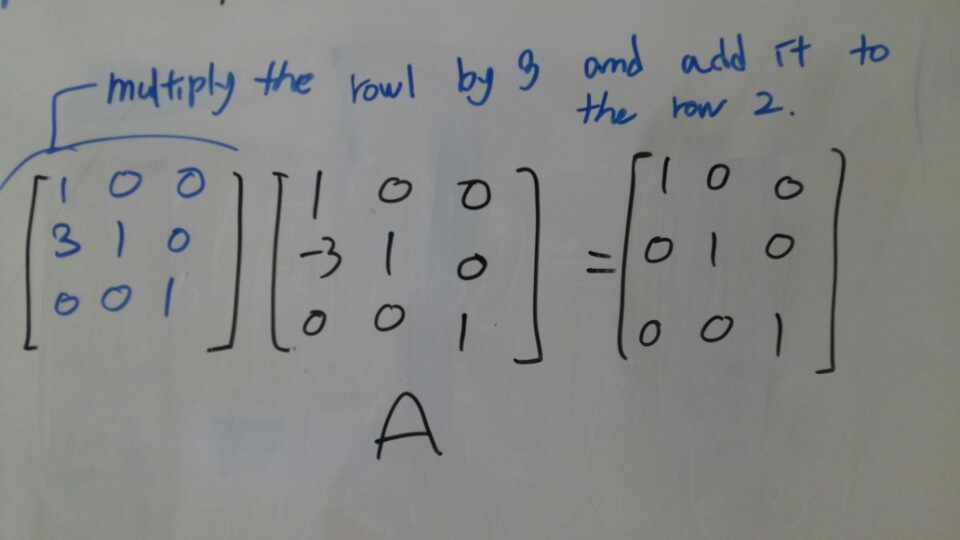 multiply the row1 by 3 and add it to
the row 2.
1 0 0 1 0 0 1 0 0
3 1 0 -3 1 0 = 0 1 0
0 0 1 0 0 1 0 0 1
A